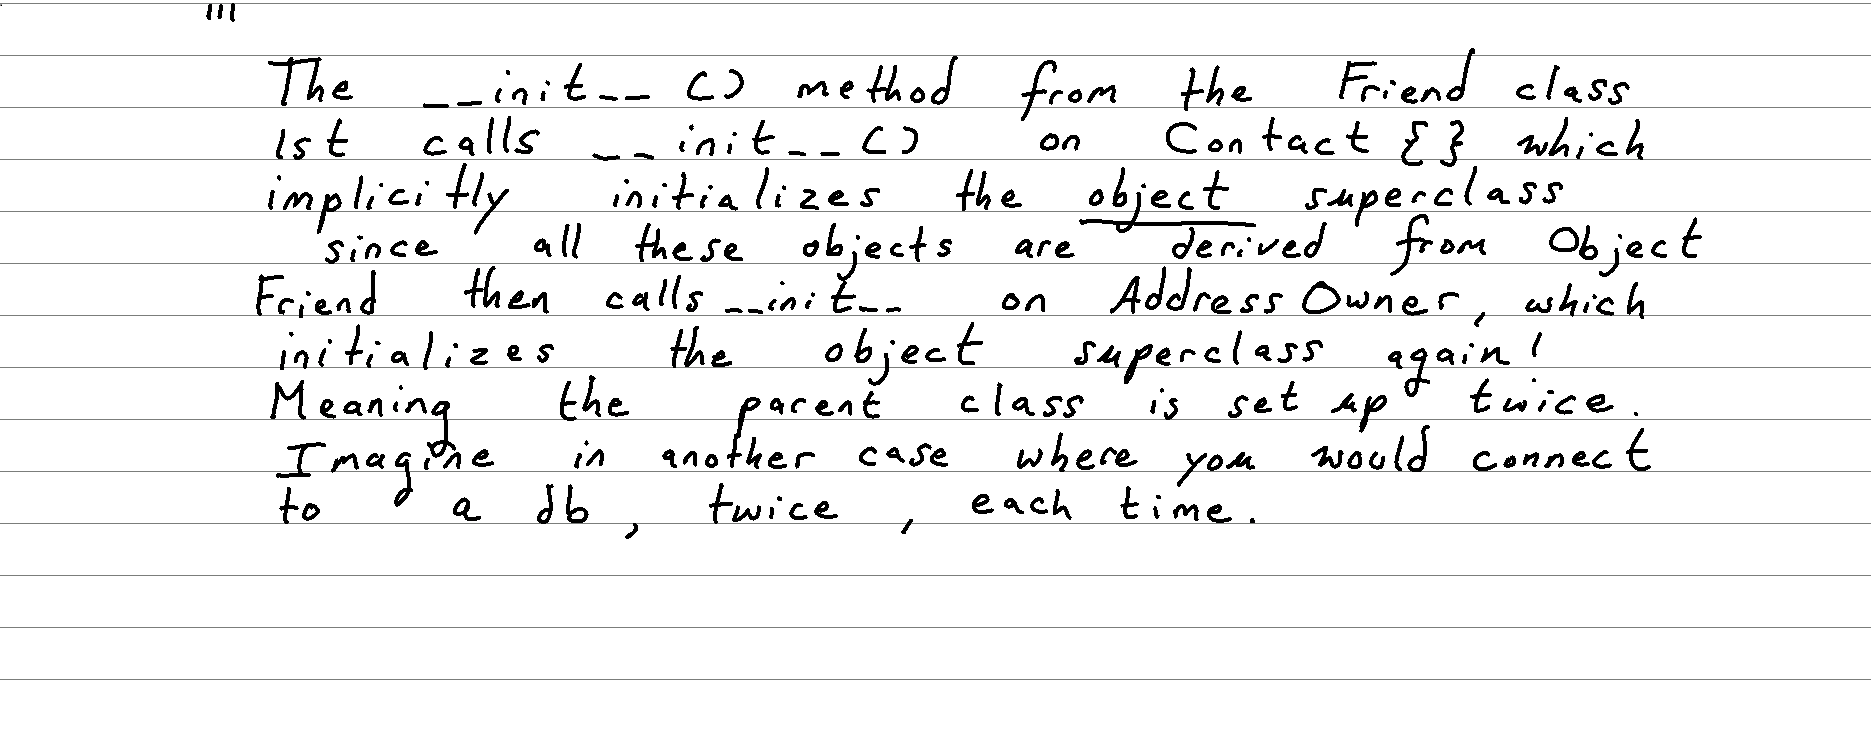 '''
The __init__() method from the Friend class
1st calls __init__() on Contact {} which
implicitly initializes the object superclass
since all these objects are derived from Object
Friend then calls __init__ on Address Owner, which
initializes the object superclass again!
Meaning the parent class is set up twice.
Imagine in another case where you would connect
to a db, twice, each time.